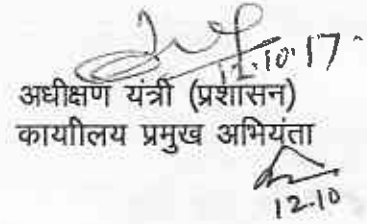 12.10.17
अधीक्षण यंत्री (प्रशासन)
कायाीलय प्रमुख अभियंता
12.10